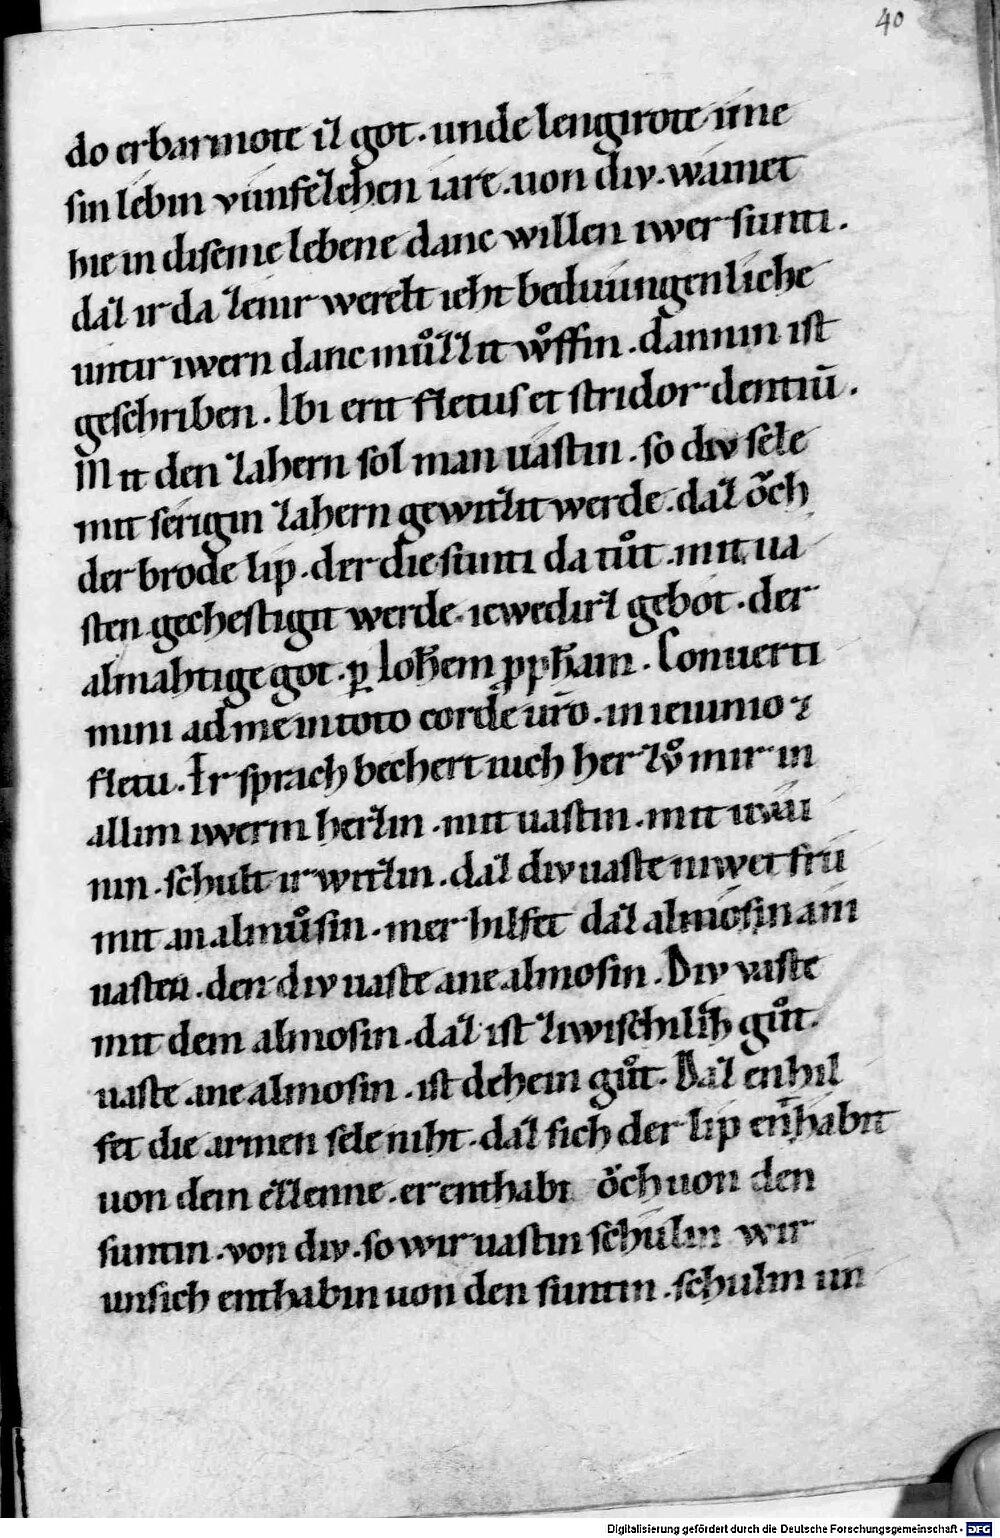 40
do erbarmote iz got · unde lengirote ime
sin lebin vunfzehen iare · uon div · wainet
hie in diseme lebene danc willen iwer sunti ·
daz ir da zenir werelt ieht beduungenliche
untir iwern danc můzzit wůffin · dannin ist
geschriben · Ibi erit fletus et stridor dentiū ·
Mit den zahern sol man uastin · so div sele
mit serigin zahern gewizzit werde · daz ǒch
der brode lip · der die sunti da tůt · mit ua
sten gechestigit werde · iewedirz gebot · der
almahtige got · ꝑ Iohēm ꝓph̄am · Conuerti
mini ad me in toto corde ur̄o · in ieiunio ⁊
fletu · Ir sprach bechert iuch her zů mir in
allim iwerm herzin · mit uastin · mit wai
nin · schult ir wizzin · daz div uaste niwet frů
mit an almůsin · mer hilfet daz almosin ain
uasten · den div uaste ane almosin · Div vaste
mit dem almosin · daz ist zwischilih gůt ·
uaste ane almosin · ist dehein gůt · Daz enhil
fet die armen sele niht · daz sich der lip enthabit
uon dem ezzenne · er enthabi ǒch uon den
suntin · von div · so wir uastin schulin wir
unsich enthabin uon den suntin · schulin un
Digitalisierung gefördert durch die Deutsche Forschungsgemeinschaft - DFG